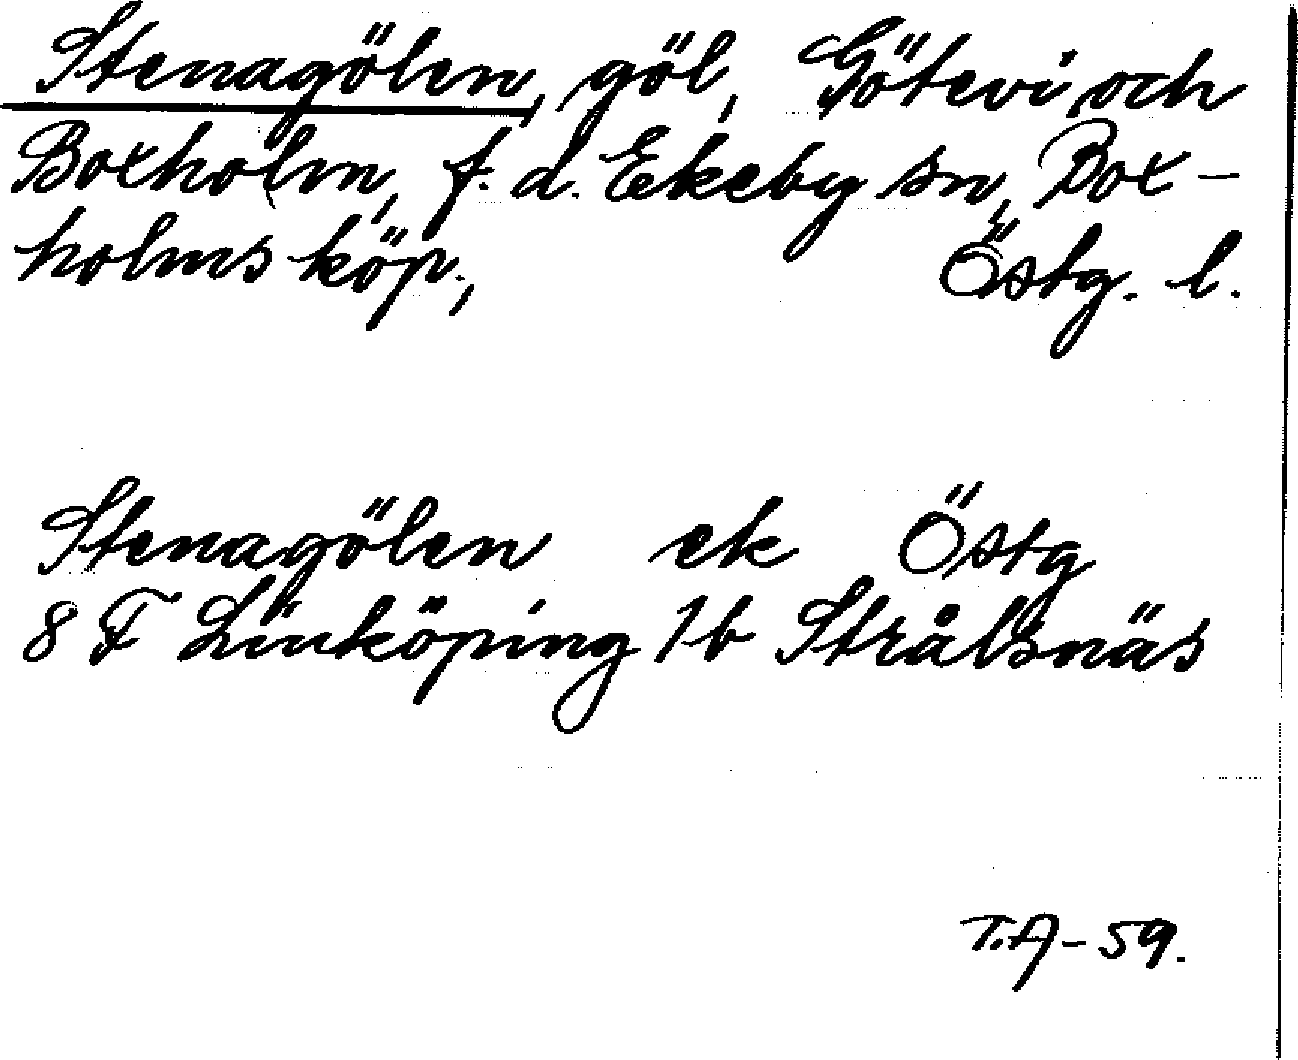 Stenagölen, göl, Götevi och
Boxholm, f. d. Ekeby sn, Box-
holms köp., Östg. l.
Stenagölen ek Östg
8 F Linköping 1b Strålsnäs
T.A-59.